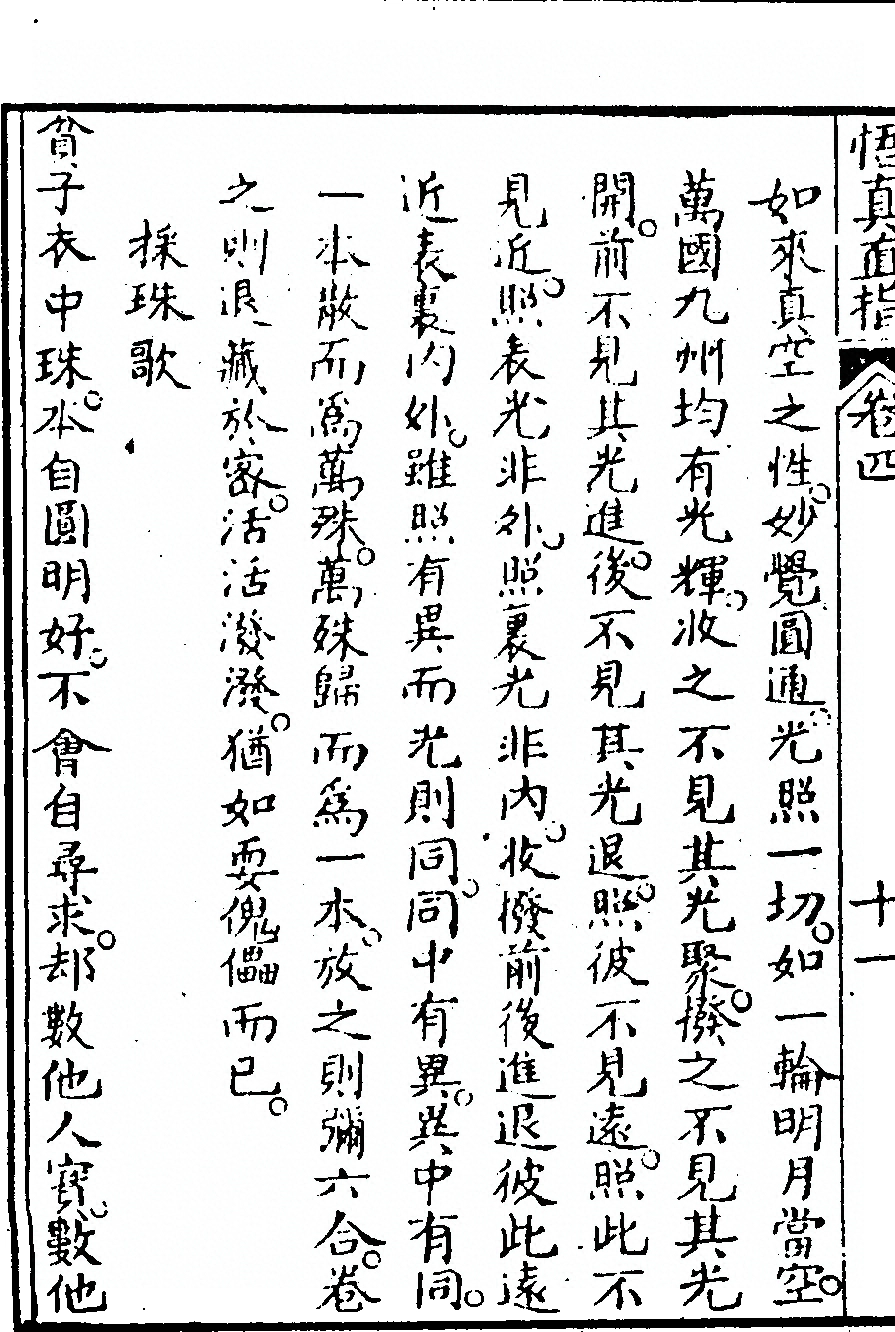 悟真直指 卷四 十一
如來真空之性。妙覺圓通。光照一切。如一輪明月當空。
萬國九州均有光輝。收之不見其光聚。撥之不見其光
開。前不見其光進。後不見其光退。照彼不見遠。照此不
見近。照表光非外。照裏光非內。收撥前後進退彼此遠
近表裏內外。雖照有異而光則同。同中有異。異中有同。
一本散而為萬殊。萬殊歸而為一本。放之則彌六合。卷
之則退藏於密。活活潑潑。猶如耍傀儡而已。
採珠歌
貧子衣中珠。本自圓明好。不會自尋求。却數他人寶。數他